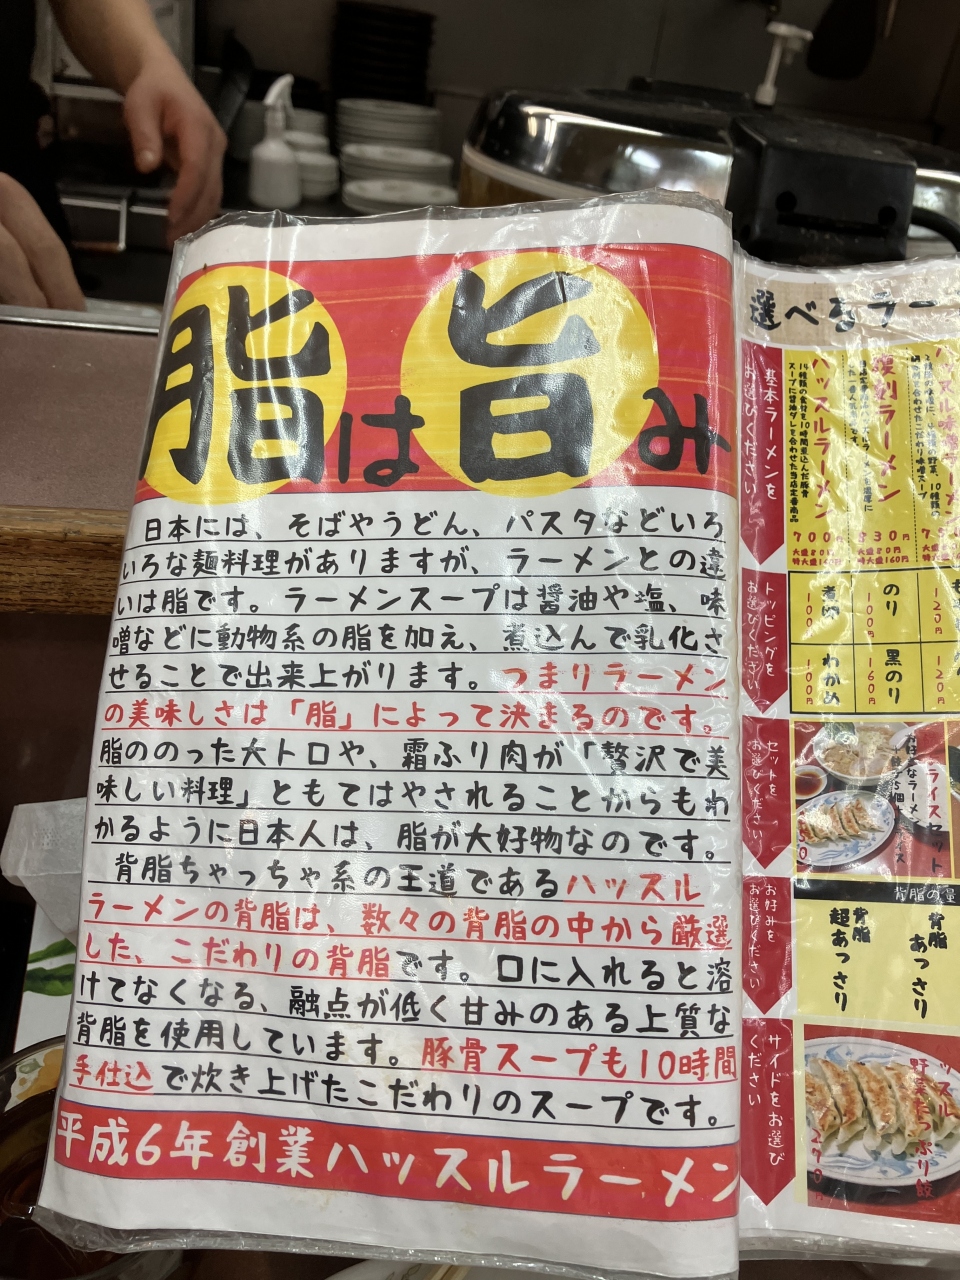 脂は旨み
日本には、そばやうどん、パスタなどいろ
いろな麺料理がありますが、ラーメンとの違
いは脂です。ラーメンスープは醤油や塩、味
噌などに動物系の脂を加え、煮込んで乳化さ
せることで出来上がります。つまりラーメン
の美味しさは「脂」によって決まるのです。
脂ののった大トロや、霜ふり肉が「贅沢で美
味しい料理」ともてはやされることからもわ
かるように日本人は、脂が大好物なのです。
背脂ちゃっちゃ系の王道であるハッスル
ラーメンの背脂は、数々の背脂の中から厳選
した、こだわりの背脂です。口に入れると溶
けてなくなる、融点が低く甘みのある上質な
背脂を使用しています。豚骨スープも10時間
手仕込で炊き上げたこだわりのスープです。
平成6年創業ハッスルラーメン
選べるラー
基本ラーメンを
お選びください
ハッスルラーメン
14種類の食材を10時間煮込んだ豚骨
スープに醤油ダレを合わせた当店定番商品
700円
大盛80円
特大盛160円
復刻ラーメン
830円
大盛80円
特大盛160円
トッピングを
お選びください
煮卵
100円
のり
100円
120円
わかめ
100円
黒のり
160円
120円
セットを
お選びください
ライスセット
お好きなラーメン
お好みを
お選びください
背脂の量
背脂
超あっさり
背脂
あっさり
サイドをお選び
ください
野菜たっぷり餃
270円